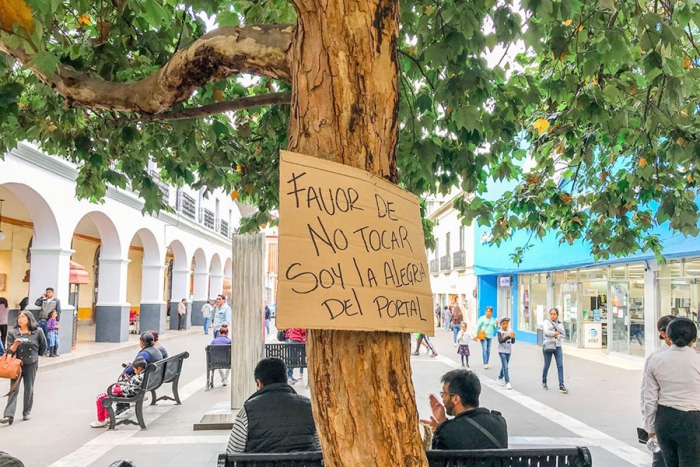 FAVOR DE
NO TOCAR
SOY lA AlEGRIA
DEl PORTAl
AT&T